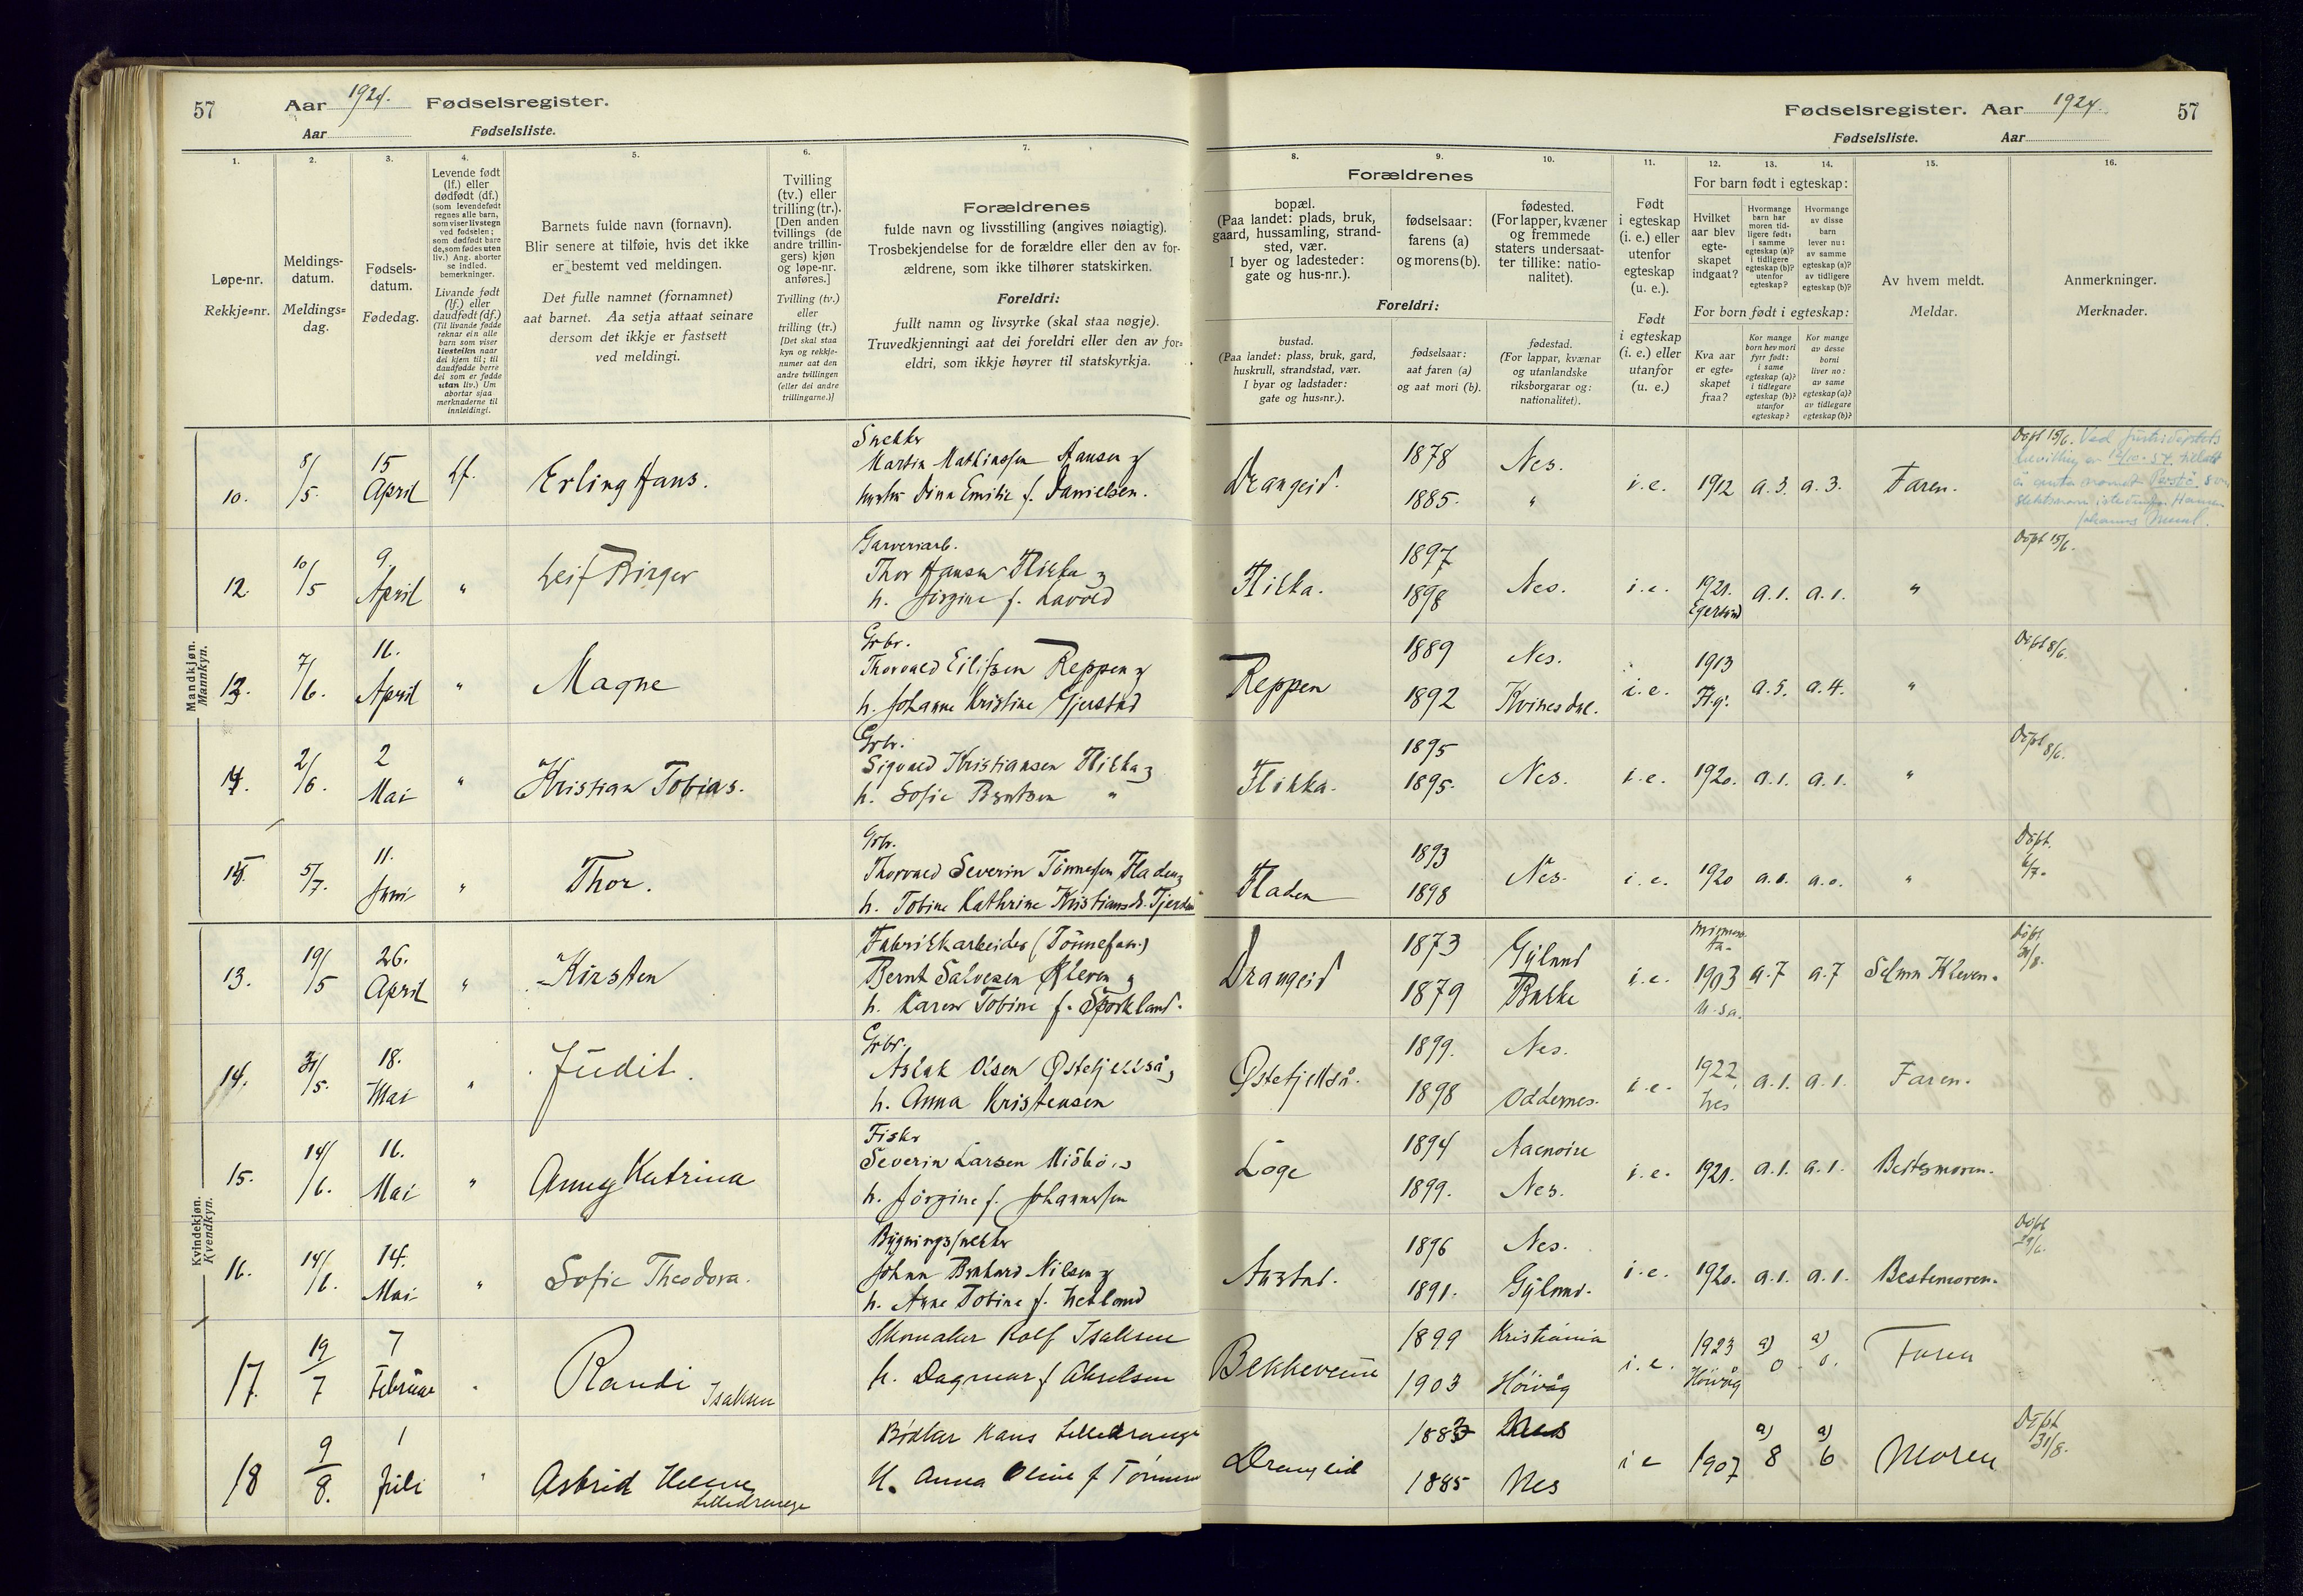 57
Aar 1924. Fødselsregister.
Aar Fødselsliste.
1.
2.
3.
4.
5.
6.
7.
Løpe-nr.
Rekkje=nr.
Meldings-
datum.
Meldings=
dag.
Fødsels-
datum.
Fødedag.
Levende født
(lf.) eller
dødfødt (df.)
(som levendefødt
regnes alle barn,
som viser livstegn
ved fødselen;
som dødfødt bare
de, som fødes uten
liv.) Ang. aborter
se indled.
bemerkninger.
Livande født
(lf.) eller
daudfødt (df.)
(Til livande fødde
reknar ein alle
barn som viser
livsteikn naar
dei kjem til; til
daudfødde berre
dei som er fødde
utan liv.) Um
abortar sjaa
merknaderne til
innleidingi.
Barnets fulde navn (fornavn).
Blir senere at tilføie, hvis det ikke
er bestemt ved meldingen.
Det fulle namnet (fornamnet)
aat barnet. Aa setja attaat seinare
dersom det ikkje er fastsett
ved meldingi.
Tvilling
(tv.) eller
trilling (tr.).
[Den anden
tvillings (de
andre trillin-
gers) kjøn
og løpe-nr.
anføres.]
Tvilling (tv.)
eller
trilling (tr.)
[Det skal staa
kyn og rekkje-
numer aat den
andre tvillingen
(eller dei andre
trillingarne.)]
Forældrenes
fulde navn og livsstilling (angives nøiagtig).
Trosbekjendelse for de forældre eller den av for-
ældrene, som ikke tilhører statskirken.
Foreldri:
fullt namn og livsyrke (skal staa nøgje).
Truvedkjenningi aat dei foreldri eller den av for=
eldri, som ikkje høyrer til statskyrkja.
Mandkjøn.
Mannkyn.
10. 8/5. 15 April Lf. Erling Hans.
Snekker
Martin Mathiassen Hansen og
hustru Dina Emilie f. Danielsen.
12. 10/5 9. April " Leif Birger
Garveriarb.
Thor Hansen Flikka og
h. Jörgine f. Lavold
13. 7/6. 16. April " Magne
Gbr.
Thorvald Eilifsen Reppen og
h. Johanne Kristine Gjerstad
14. 2/6. 2 Mai " Kristian Tobias.
Gbr.
Sigvald Kristiansen Flikka og
h. Sofie Berntsen "
15. 5/7. 11. Juni " Thor.
Gbr.
Thorvald Severin Tönnessen Fladen og
h. Tobine Kathrine Kristiansd.
Kvindekjøn.
Kvendkyn.
13. 19/5 26. April " Kirsten
Fabrikkarbeider (Tönnefabr.)
Bernt Salvesen Kleven og
h. Karen Tobine f.
14. 31/5. 18. Mai " Judit.
Gbr.
Aslak Olsen Østefjellså og
h. Anna Kristensen
15. 14/6. 16. Mai " Anny Katrina
Fisker
Severin Larsen
h. Jörgine f. Johannessen
16. 14/6. 14. Mai " Sofie Theodora.
Bygningssnekker
Johan Bernhard Nilsen og
h. Anne Tobine f. Hetland
17. 19/7 7 Februar " Randi Isaksen
Skomaker Rolf Isaksen
h. Dagmar f Akselsen
18 9/8. 1 Juli " Astrid Helene Lilledrange
Bødker Hans Lilledrange
H. Anna Oline f
Fødselsregister. Aar 1924. 57
Fødselsliste. Aar
8.
9.
10.
11.
12.
13.
14.
15.
16.
Forældrenes
bopæl.
(Paa landet: plads, bruk,
gaard, hussamling, strand-
sted, vær.
I byer og ladesteder:
gate og hus-nr.).
fødselsaar:
farens (a)
og morens (b).
fødested.
(For lapper, kvæner
og fremmede
staters undersaat-
ter tillike: natio-
nalitet).
Foreldri:
bustad.
(Paa landet: plass, bruk, gard,
huskrull, strandstad, vær.
I byar og ladstader:
gate og hus=nr.).
fødselsaar:
aat faren (a)
og aat mori (b).
fødestad.
(For lappar, kvænar
og utanlandske
riksborgarar og:
nationalitet).
Født
i egteskap
(i. e.) eller
utenfor
egteskap
(u. e.).
Født
i egteskap
(i. e.) eller
utanfor
(u. e.)
For barn født i egteskap:
Hvilket
aar blev
egte-
skapet
indgaat?
Hvormange
barn har
moren tid-
ligere født:
i samme
egteskap (a)?
i tidligere
egteskap (b)?
utenfor
egteskap?
Hvormange
av disse
barn
lever nu:
av samme
egteskap (a)?
av tidligere
egteskap (b)?
For born født i egteskap:
Kva aar
er egte=
skapet
fraa?
Kor mange
born hev mori
fyrr født:
i same
egteskap (a)?
i tidlegare
egteskap (b)?
utanfor
egteskap?
Kor mange
av desse
borni
liver no:
av same
egteskap (a)?
av tidlegare
egteskap (b)?
Av hvem meldt.
Meldar.
Anmerkninger.
Merknader.
Drangeid. 1878 1885. Nes. " i. e. 1912 a. 3. a. 3. Faren.
Döpt 15/6. Ved Justisdeptets
bevilling av 12/10-54 tillatt
å anta navnet som
slektsnavn istedenfor Hansen
Flikka. 1897 1898 Nes. i. e. 1921. Egersund a. 1. a. 1. " Döpt 15/6.
Reppen 1889 1892 Nes. Kvinesdal. i. e. 1913 a. 5. a. 4. " Döpt 8/6.
Flikka. 1895 1895. Nes. i. e. 1920. a. 1. a. 1. " Döpt 8/6.
Fladen 1893 1898 Nes. i. e. 1920 a. o. a. o. " Döpt. 6/7.
Drangeid 1873 1879 Gyland Bakke i. e. 1903 U. S. a. a. 7 a. 7 Selma Kleven. Döbt 31/8.
Østefjellså. 1899. 1898 Nes. Oddernes. i. e. 1922, Nes a. 1. a. 1. Faren.
Löge 1894 1899. Nes. i. e. 1921. a. 1. a. 1. Bestemoren.
Austad. 1896 1891. Nes. Gyland. i. e. 1920. a. 1. a. 1. Bestemoren. Döpt 29/6.
1899 1903 Kristiania Höivåg i. e. 1923 Höivåg a) o a) o. Faren
Drangeid 1883 1885 Nes Nes i e 1907 a) 8 a) 6 Moren Döpt 31/8.